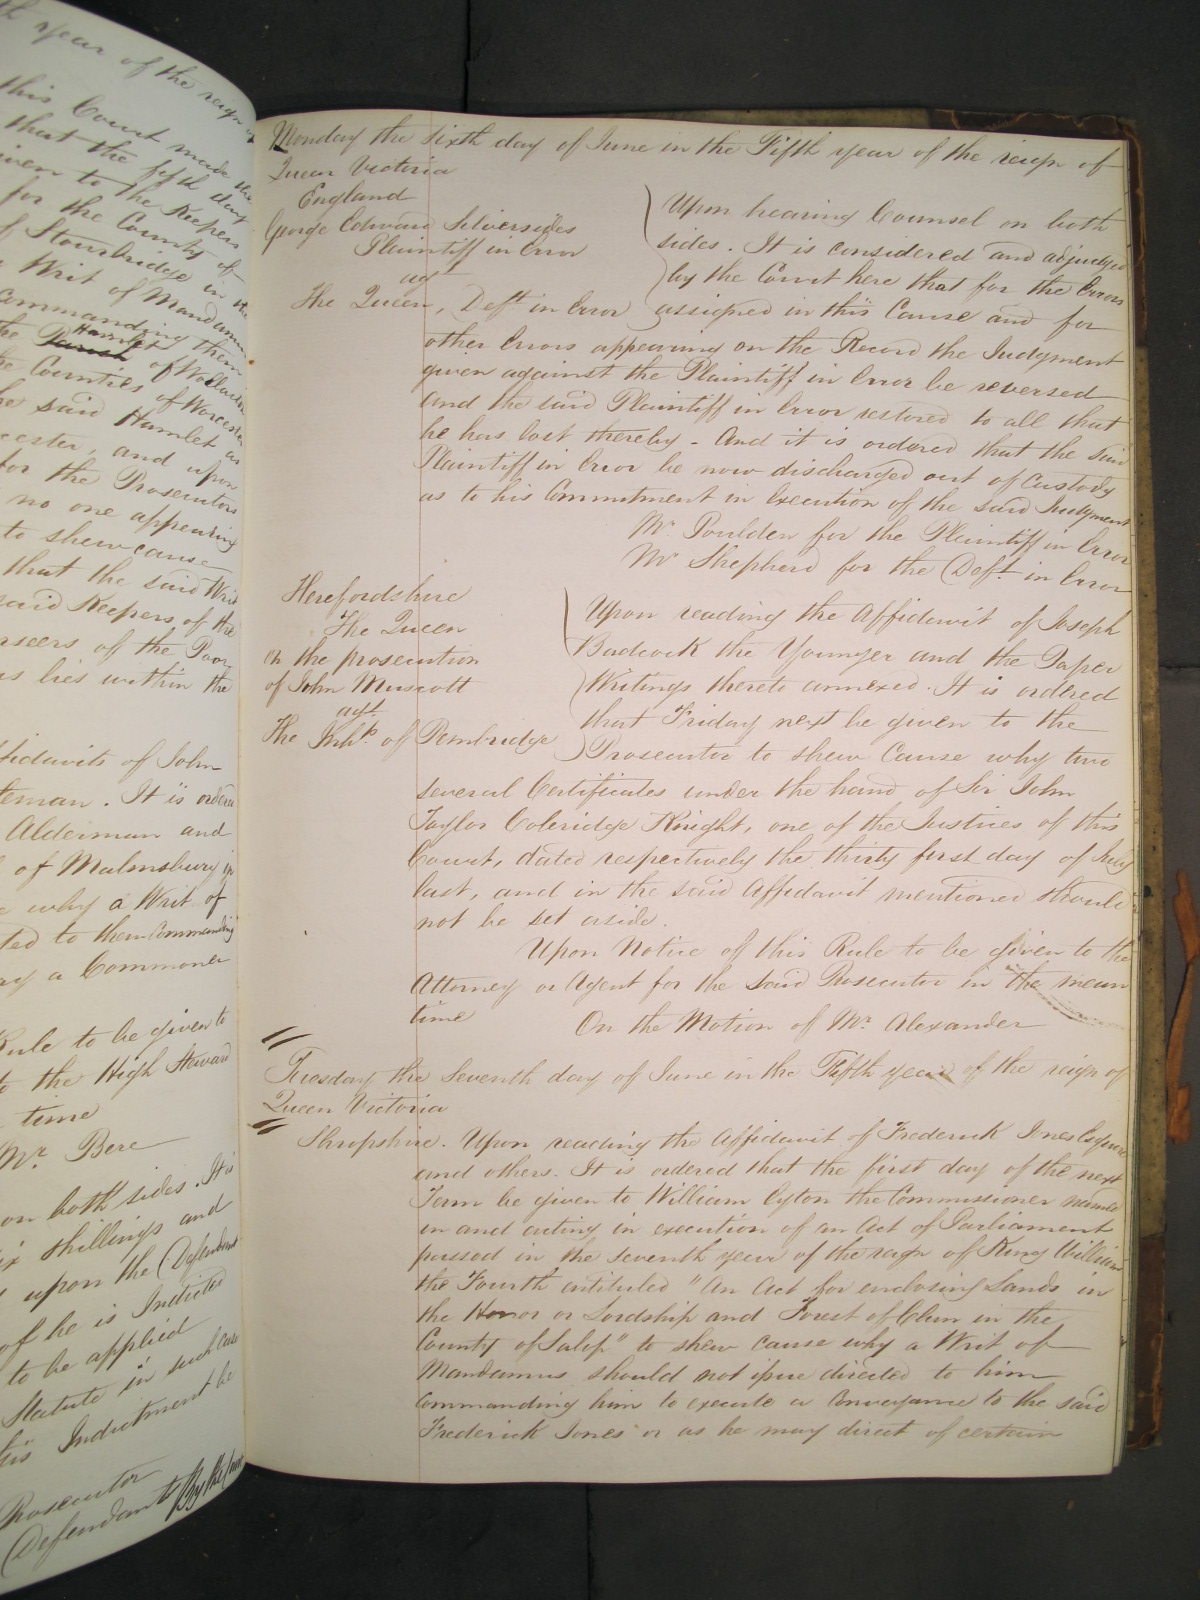 th year of the reign of
this Court made the
that the fifth day
given to the Keepers
for the County of
of Stourbridge in the
a Writ of Mandamus
commanding them
the Parish Hamlet of Wollaston
the Counties of Worcester
the said Hamlet as
cester, and upon
for the Prosecutors
no one appearing
to shew cause
that the said Writ
said Keepers of the
rseers of the Poor
as lies within the
fidavits of John
teman. It is ordered
Alderman and
of Malmsbury in
why a Writ of
ted to them Commanding
a Commoner
Rule to be given to
to the High Steward
time
Mr. Bere
on both sides. It is
ix shillings and
upon the Defendant
of he is Indicted
to be applied
Statute in such case
this Indictment be
Prosecutor
Defendant By the Court
Monday the sixth day of June in the Fifth year of the reign of
Queen Victoria
England
George Edward Silversides
Plaintiff in Error
agt
The Queen, Deft in Error
Upon hearing Counsel on both
sides. It is considered and adjudged
by the Court here that for the Errors
assigned in this Cause and for
other Errors appearing on the Record the Judgment
given against the Plaintiff in Error be reversed
and the said Plaintiff in Error restored to all that
he has lost thereby - And it is ordered that the said
Plaintiff in Error be now discharged out of Custody
as to his Commitment in Execution of the said Judgment
Mr. Poulden for the Plaintiff in Error
Mr Shepherd for the Deft. in Error
Herefordshire
The Queen
on the prosecution
of John Muscott
agt
The Inhts of Pembridge
Upon reading the Affidavit of Joseph
Badcock the Younger and the Paper
Writings thereto annexed. It is ordered
that Friday next be given to the
Prosecutor to shew Cause why two
several Certificates under the hand of Sir John
Taylor Coleridge Knight, one of the Justices of this
Court, dated respectively the thirty first day of July
last, and in the said Affidavit mentioned should
not be set aside.
Upon Notice of this Rule to be given to the
Attorney or Agent for the said Prosecutor in the mean
time
On the Motion of Mr. Alexander
Tuesday the Seventh day of June in the Fifth year of the reign of
Queen Victoria
Shropshire. Upon reading the Affidavit of Frederick Jones Esquire
and others. It is ordered that the first day of the next
Term be given to William Eyton the Commissioner named
in and acting in execution of an Act of Parliament
passed in the seventh year of the reign of King William
the Fourth intituled "An Act for enclosing Lands in
the Honor or Lordship and Forest of Clun in the
County of Salop" to shew cause why a Writ of
Mandamus should not issue directed to him
commanding him to execute a Conveyance to the said
Frederick Jones or as he may direct of certain